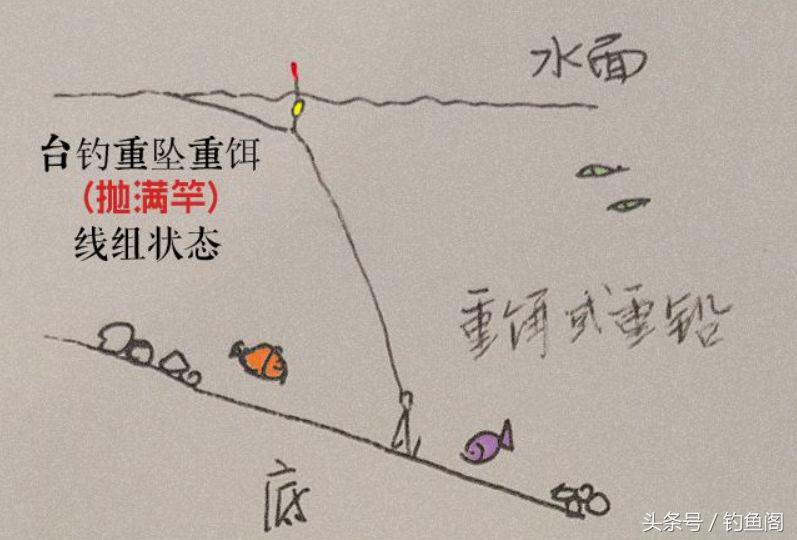 水面
台钓重坠重饵
(抛满竿)
线组状态
重饵或重铅
底
头条号 / 钓鱼阁